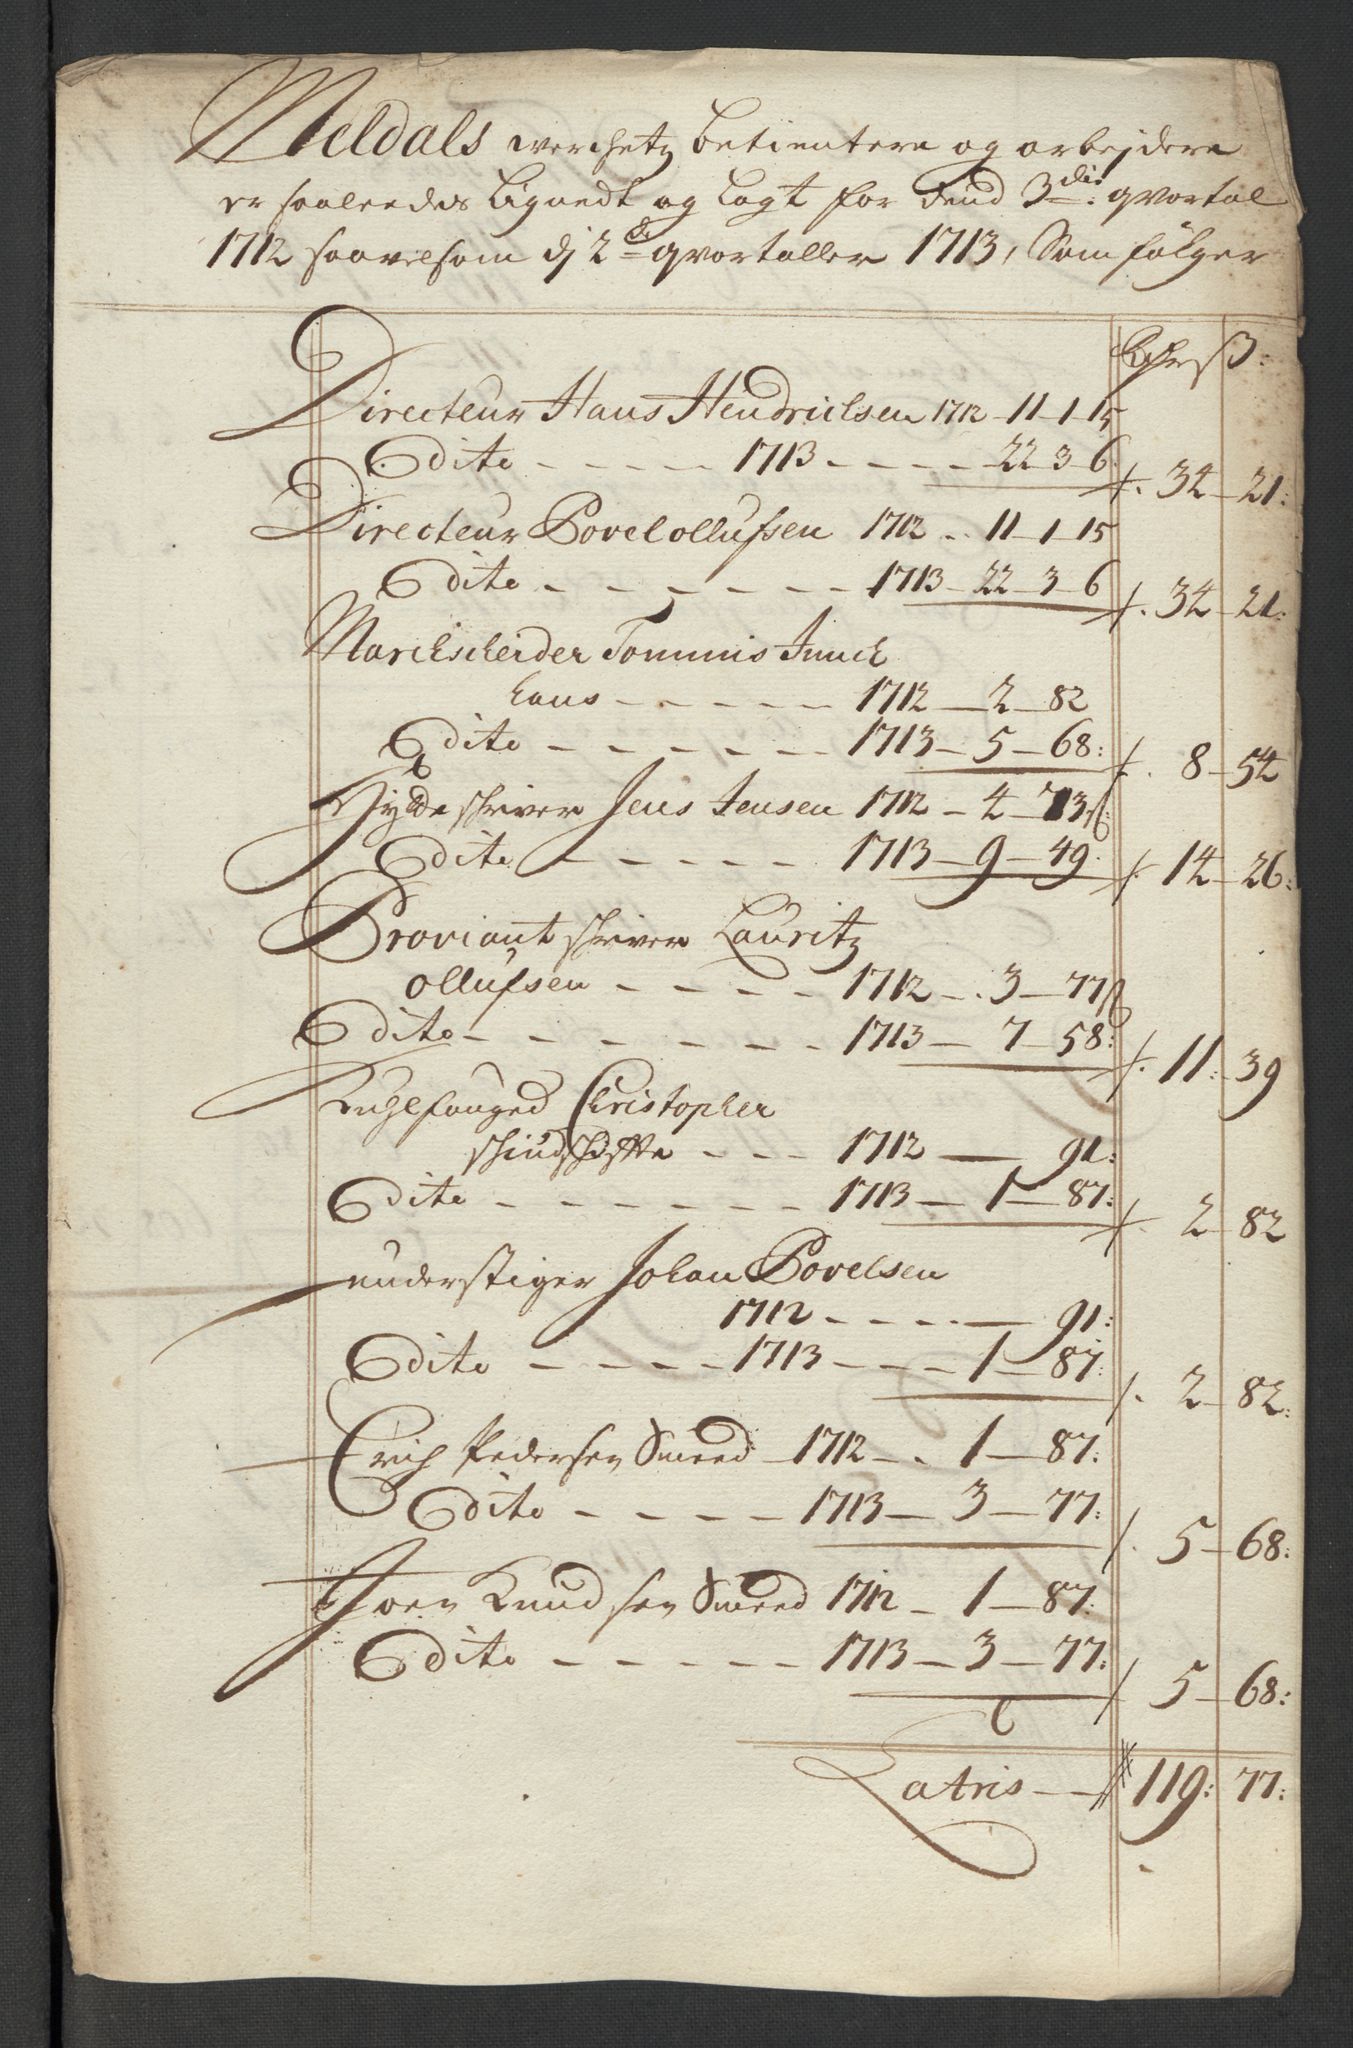 Meldals werchetz betientere og arbejdere
er saaledes Lignedt og Lagt for dend 3die: qvortal
1712 saavelsom dj 2de qvortaller 1713, Som følger
ß:
Directeur Hans Hendrichsen 1712 - 11 - 1 - 15
Dito - - - - - 1713 - - - - - 22 - 3 - 6
34 - 21:
Directeur Povel ollufsen 1712 - 11 - 1 - 15
Dito - - - - - - 1713 - 22 - 3 - 6
34 - 21:
Marchscheider Tommis Junck
hans - - - - - 1712 - 2 - 82
Dito - - - - - - 1713 - 5 - 68:
8 - 54
schriver Jens Jensen 1712 - 4 - 73ß:
Dito - - - - - 1713 - 9 - 49.
14 - 26:
Proviant schriver Lauritz
ollufsen - - - - 1712 - 3 - 77ß
Dito - - - - - - - 1713 - 7 - 58:
11: 39
Kuhlfouged Christopher
- - - 1712 - 91:
Dito - - - - - - 1713 - 1 - 87:
2 - 82
understiger Johan Povelsen
1712 - - - - - 91:
Dito - - - - 1713 - - - - 1 - 87:
2 - 82:
Erich Pedersen Smeed 1712 - 1 - 87:
Dito - - - - 1713 - 3 - 77:
5 - 68:
Joen Knudsen Smeed 1712 - 1 - 87:
Dito - - - - - 1713 - 3 - 77:
5 - 68:
Latris - 119: 77: